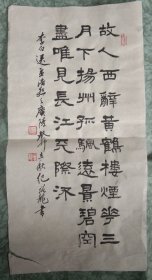 故人西辭黃鶴樓煙花三
月下揚州孤驅遠景碧空
盡唯見長江天際流
李白送孟浩然之廣陵